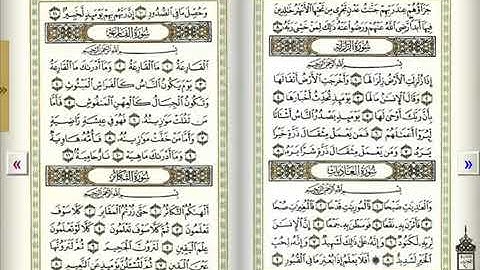 جَزَآؤُهُمْ عِندَ رَبِّهِمْ جَنَّٰتُ عَدْنٍ تَجْرِى مِن تَحْتِهَا ٱلْأَنْهَٰرُ خَٰلِدِينَ
فِيهَآ أَبَدًا رَّضِىَ ٱللَّهُ عَنْهُمْ وَرَضُوا۟ عَنْهُ ذَٰلِكَ لِمَنْ خَشِىَ رَبَّهُۥ ٨
سُورَةُ الزَّلْزَلَةِ
بِسْمِ ٱللَّهِ ٱلرَّحْمَٰنِ ٱلرَّحِيمِ
إِذَا زُلْزِلَتِ ٱلْأَرْضُ زِلْزَالَهَا ١ وَأَخْرَجَتِ ٱلْأَرْضُ أَثْقَالَهَا
٢ وَقَالَ ٱلْإِنسَٰنُ مَا لَهَا ٣ يَوْمَئِذٍ تُحَدِّثُ أَخْبَارَهَا ٤
بِأَنَّ رَبَّكَ أَوْحَىٰ لَهَا ٥ يَوْمَئِذٍ يَصْدُرُ ٱلنَّاسُ أَشْتَاتًا
لِّيُرَوْا۟ أَعْمَٰلَهُمْ ٦ فَمَن يَعْمَلْ مِثْقَالَ ذَرَّةٍ خَيْرًا
يَرَهُۥ ٧ وَمَن يَعْمَلْ مِثْقَالَ ذَرَّةٍ شَرًّا يَرَهُۥ ٨
سُورَةُ العَادِيَاتِ
بِسْمِ ٱللَّهِ ٱلرَّحْمَٰنِ ٱلرَّحِيمِ
وَٱلْعَٰدِيَٰتِ ضَبْحًا ١ فَٱلْمُورِيَٰتِ قَدْحًا ٢ فَٱلْمُغِيرَٰتِ
صُبْحًا ٣ فَأَثَرْنَ بِهِۦ نَقْعًا ٤ فَوَسَطْنَ بِهِۦ جَمْعًا ٥ إِنَّ ٱلْإِنسَٰنَ
لِرَبِّهِۦ لَكَنُودٌ ٦ وَإِنَّهُۥ عَلَىٰ ذَٰلِكَ لَشَهِيدٌ ٧ وَإِنَّهُۥ لِحُبِّ
ٱلْخَيْرِ لَشَدِيدٌ ٨ أَفَلَا يَعْلَمُ إِذَا بُعْثِرَ مَا فِى ٱلْقُبُورِ ٩
وَحُصِّلَ مَا فِى ٱلصُّدُورِ ١٠ إِنَّ رَبَّهُم بِهِمْ يَوْمَئِذٍ لَّخَبِيرٌۢ ١١
سُورَةُ القَارِعَةِ
بِسْمِ ٱللَّهِ ٱلرَّحْمَٰنِ ٱلرَّحِيمِ
ٱلْقَارِعَةُ ١ مَا ٱلْقَارِعَةُ ٢ وَمَآ أَدْرَىٰكَ مَا ٱلْقَارِعَةُ
٣ يَوْمَ يَكُونُ ٱلنَّاسُ كَٱلْفَرَاشِ ٱلْمَبْثُوثِ ٤
وَتَكُونُ ٱلْجِبَالُ كَٱلْعِهْنِ ٱلْمَنفُوشِ ٥ فَأَمَّا
مَن ثَقُلَتْ مَوَٰزِينُهُۥ ٦ فَهُوَ فِى عِيشَةٍ رَّاضِيَةٍ
٧ وَأَمَّا مَنْ خَفَّتْ مَوَٰزِينُهُۥ ٨ فَأُمُّهُۥ هَاوِيَةٌ
٩ وَمَآ أَدْرَىٰكَ مَا هِيَهْ ١٠ نَارٌ حَامِيَةٌۢ ١١
سُورَةُ التَّكَاثُرِ
بِسْمِ ٱللَّهِ ٱلرَّحْمَٰنِ ٱلرَّحِيمِ
أَلْهَىٰكُمُ ٱلتَّكَاثُرُ ١ حَتَّىٰ زُرْتُمُ ٱلْمَقَابِرَ ٢ كَلَّا سَوْفَ
تَعْلَمُونَ ٣ ثُمَّ كَلَّا سَوْفَ تَعْلَمُونَ ٤ كَلَّا لَوْ تَعْلَمُونَ
عِلْمَ ٱلْيَقِينِ ٥ لَتَرَوُنَّ ٱلْجَحِيمَ ٦ ثُمَّ لَتَرَوُنَّهَا
عَيْنَ ٱلْيَقِينِ ٧ ثُمَّ لَتُسْـَٔلُنَّ يَوْمَئِذٍ عَنِ ٱلنَّعِيمِ ٨